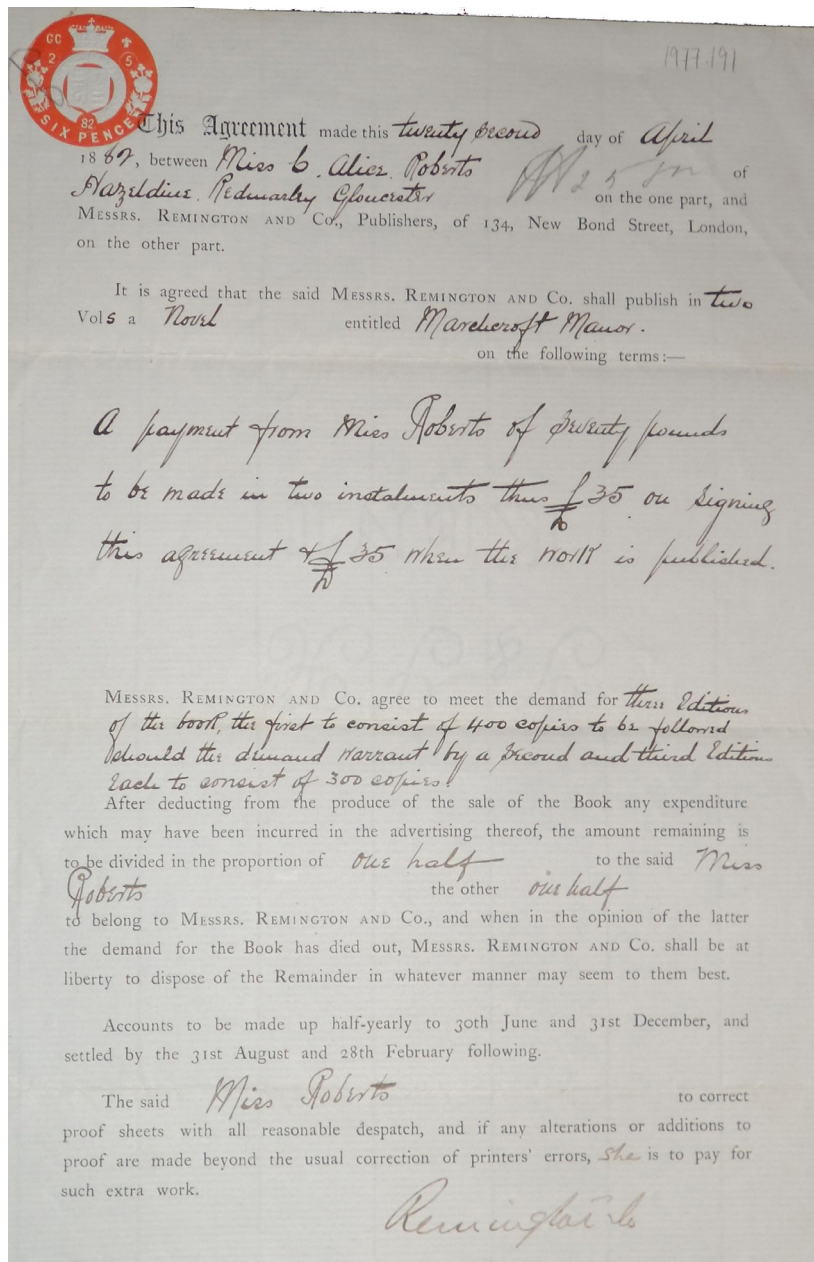 1977.191
GC
2 5
82
SIX PENCE
This Agreement made this twenty second day of April
1882, between Miss C. Alice Roberts of
Hazeldine. Redmarley Gloucester on the one part, and
MESSRS. REMINGTON AND CO., Publishers, of 134, New Bond Street, London,
on the other part.
It is agreed that the said MESSRS. REMINGTON AND CO. shall publish in two
Vols a Novel entitled Marchcroft Manor.
on the following terms:—
A payment from Miss Roberts of Seventy pounds
to be made in two instalments thus £35 on signing
this agreement & £35 when the work is published.
MESSRS. REMINGTON AND CO. agree to meet the demand for three Editions
of the book, the first to consist of 400 copies to be followed
should the demand warrant by a second and third Editions
Each to consist of 300 copies.
After deducting from the produce of the sale of the Book any expenditure
which may have been incurred in the advertising thereof, the amount remaining is
to be divided in the proportion of one half to the said Miss
Roberts the other one half
to belong to MESSRS. REMINGTON AND CO., and when in the opinion of the latter
the demand for the Book has died out, MESSRS. REMINGTON AND CO. shall be at
liberty to dispose of the Remainder in whatever manner may seem to them best.
Accounts to be made up half-yearly to 30th June and 31st December, and
settled by the 31st August and 28th February following.
The said Miss Roberts to correct
proof sheets with all reasonable despatch, and if any alterations or additions to
proof are made beyond the usual correction of printers' errors, she is to pay for
such extra work.
Remington & Co